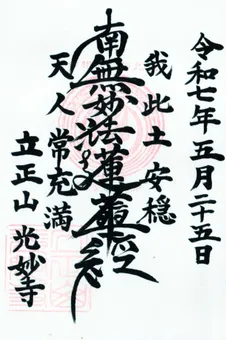 令和七年五月二十五日
我此土安穏
南無妙法蓮華経
天人常充満
立正山 光妙寺